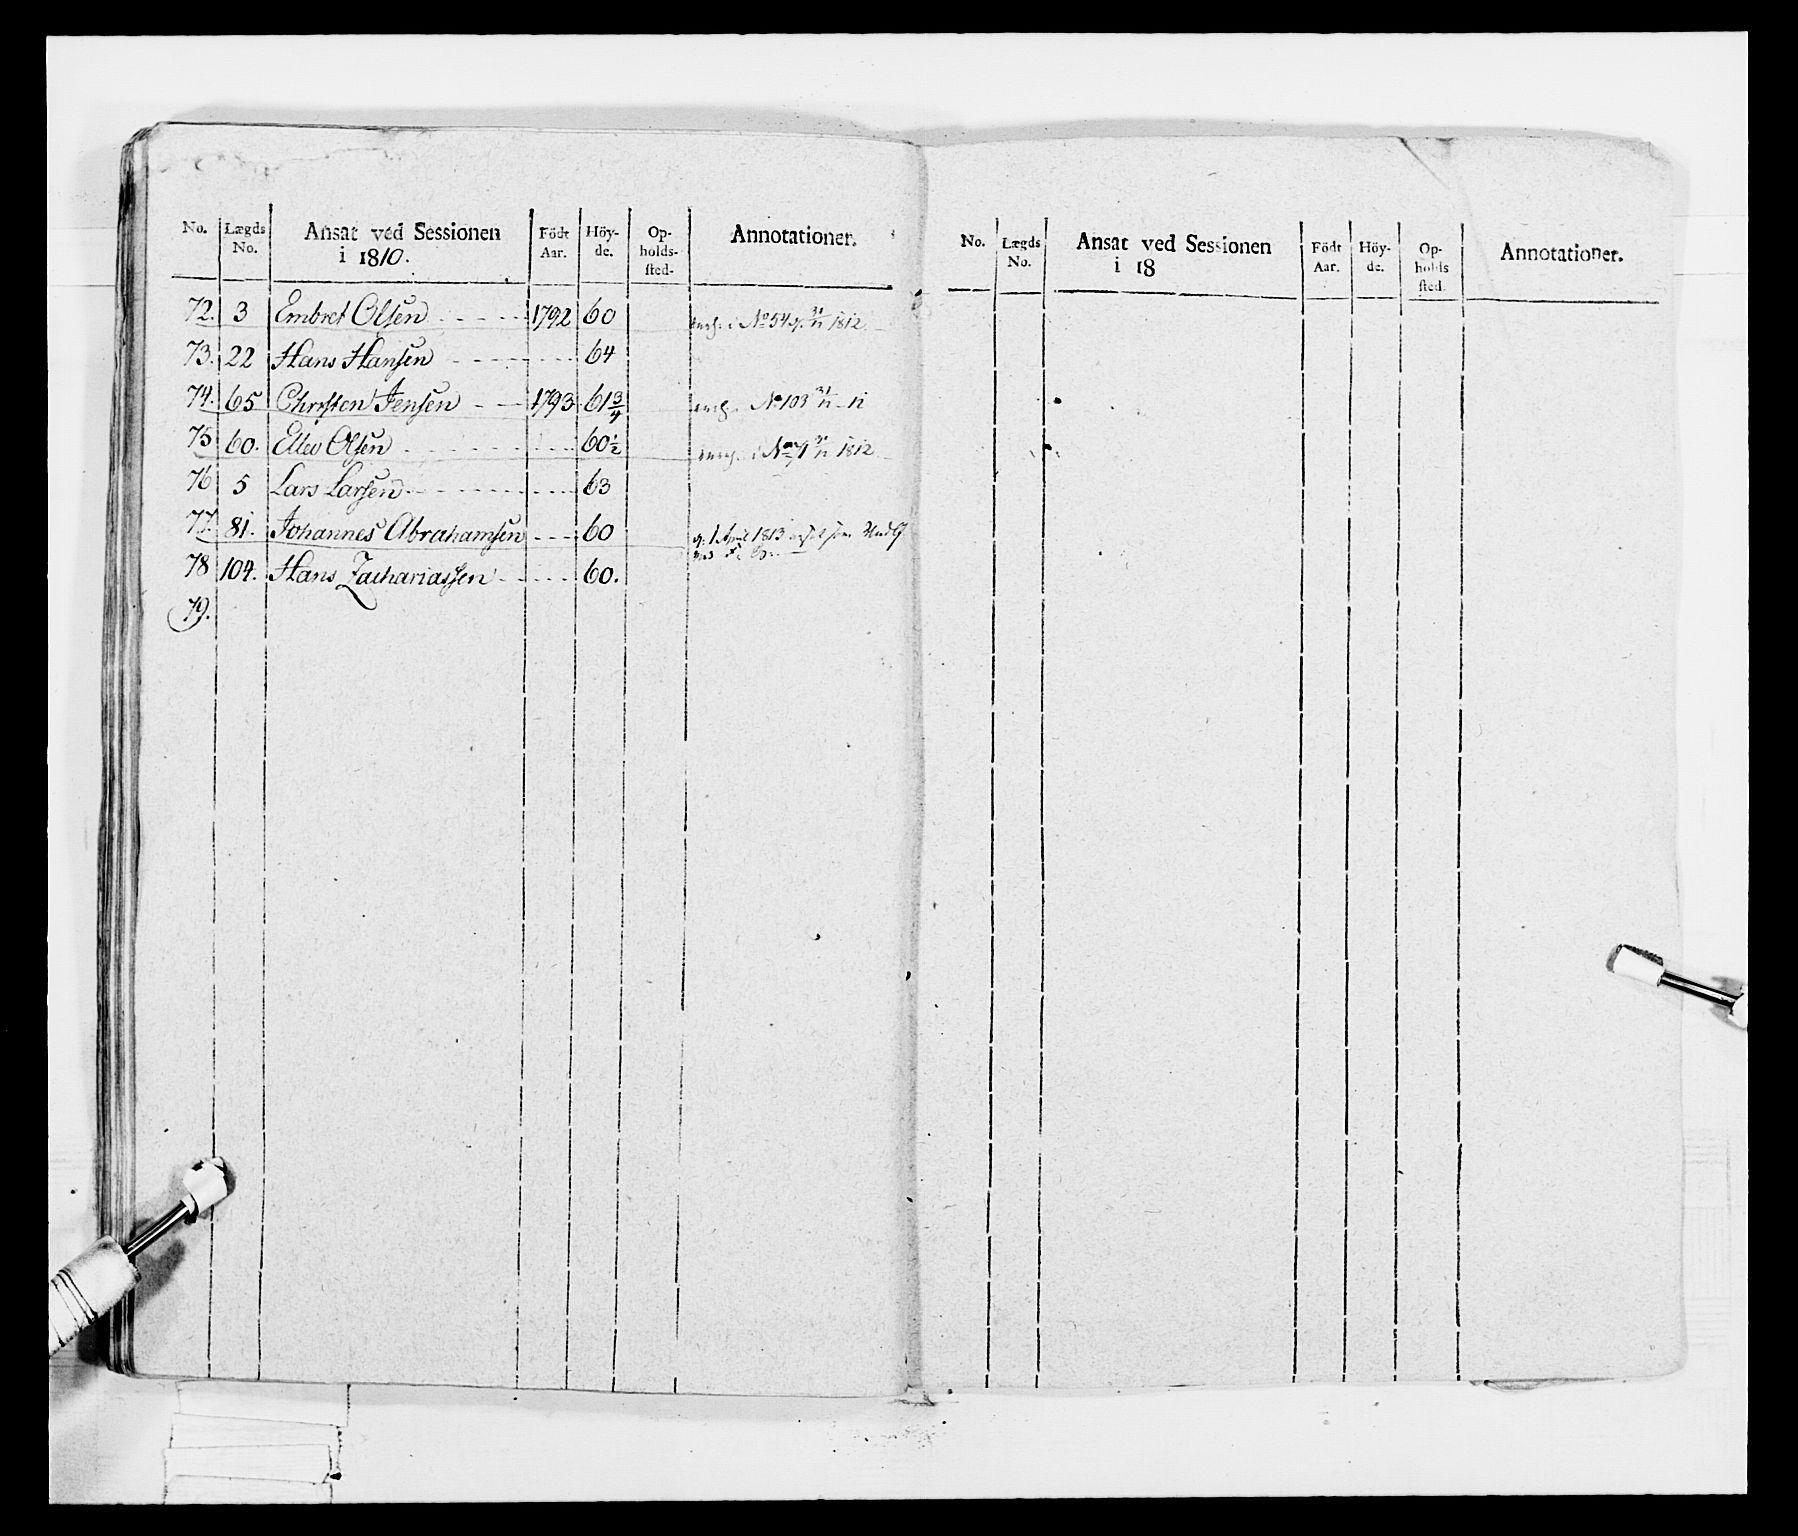 No. Lægds No. Ansat ved Sessionen i 1810. Födt Aar. Höyde. Opholdssted. Annotationer.
72. 3 Embret Olsen 1792 60 i No 54 31/12 1812
73. 22 Hans Hansen 64
74. 65 Christen Jensen 1793 61 3/4 No 103 31/12 12
75 60. Ellev Olsen 60 1/2 i No 71 31/12 1812
76 5 Lars Larsen 63
77. 81. Johannes Abrahamsen 60 1 April 1813 som
78 104. Hans Zachariassen 60.
79.
No. Lægds No. Ansat ved Sessionen i 18 Födt Aar. Höyde. Opholds sted. Annotationer.